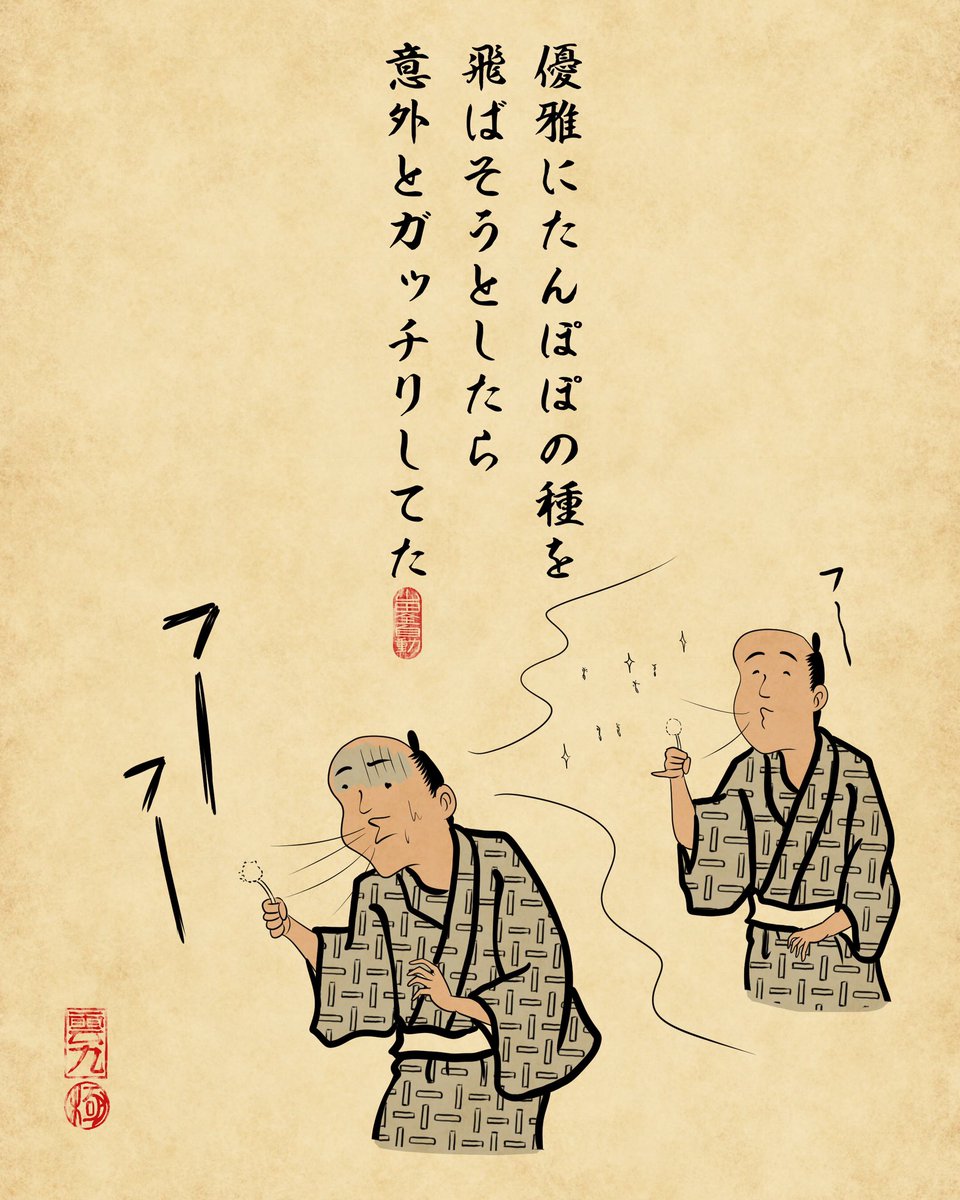 優雅にたんぽぽの種を
飛ばそうとしたら
意外とガッチリしてた
フー
フー
フー